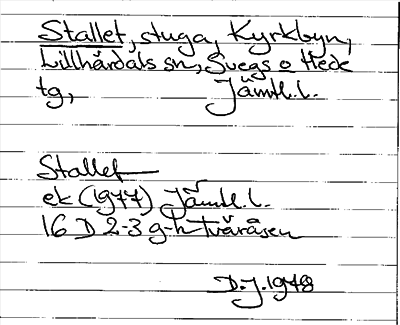 Stallet, stuga, Kyrkbyn,
Lillhärdals sn, Svegs o Hede
tg, Jämtl.l.
Stallet
ek (1977) Jämtl.l.
16 D 2-3 g-h Tvåråsen
D.J. 1978